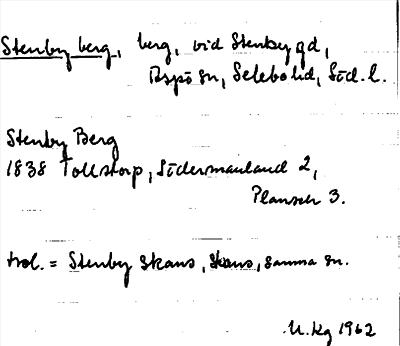 Stenby berg, berg, vid Stenby gd,
Aspö sn, Selebo hd, Söd. l.
Stenby Berg
1838 Tollstorp, Södermanland 2,
Plansch 3.
trol. = Stenby Skans, skans, samma sn.
U. Kg 1962